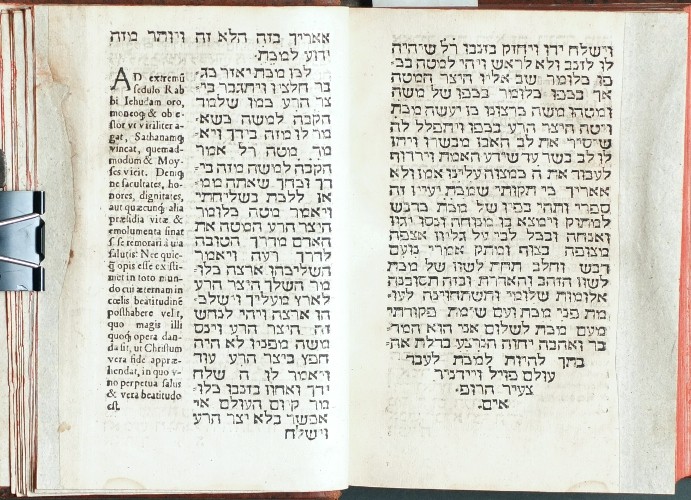 אאריך בזה הלא זה ויותר מזה
ידוע למכת.
לכן מכת יאזר כג־
בר חלציו ויתגבר בי־
צר הרע כמו שלמד
הקבה למשה כשא־
מר לו מזה בידך ויא־
מר מטה רל אמר
הקבה למשה מזה בי־
דך ובחך שאתה ממ־
או ללכת בשליחתי
ויאמר מטה כלומר
היצר הרע המטה את
האדם מדרך הטובה
לדרך רעה ויאמר
השליכהו ארצה כלו־
מר השלך היצר הרע
לארץ מעליך וישלכ־
הו ארצה ויהי לנחש
זה היצר הרע וינס
משה מפניו לא היה
חפץ ביצר הרע עוד
ויאמר לו ה שלח
ידך ואחוז בזנבו כלו־
מר קיום העולם אי
אפשר בלא יצר הרע
וישלח
AD extremū
sedulo Rab
bi Iehudam oro,
moneoq; & ob e-
stor vt viriliter a-
gat, Sathanamq;
vincat, quemad-
modum & Moy-
ses vicit. Deniq;
ne facultates, ho-
nores, dignitates,
aut quæcunq; alia
præsidia vitæ &
emolumenta sināt
se remorari à uia
salutis: Nec quic-
q̃ opis esse existi-
met in toto mun-
do cui æternam in
cœlis beatitudinē
posthabere velit,
quo magis illi
quoq; opera dan-
da sit, ut Christum
vera fide appræ-
hendat, in quo v-
no perpetua salus
& vera beatitudo
est.
וישלח ידו ויחזק בזנבו רל שיהיה
לו לזנב ולא לראש ויהי למטה בכ־
פו כלומר שב אליו היצר המטה
אך בכפו כלומר בכפו של משה
ומטהו משה ברצונו בו יעשה מכת
ויטה היצר הרע בכפו ויתפלל לה
שיסיר את לב האבן מבשרו ויהי
לו לב בשר עד שידע האמת וירדוף
לעבוד את ה כמצוה עלינו אמן ולא
אאריך כי תקותי שמכת יעיין זה
ספרי ותהי בפיו של מכת כדבש
למתוק וימצא בו מנוחה ונסו יגון
ואנחה ובכל לבי על גליון אצפה
מצופה בצוף ומתק אמרי נועם
דבש וחלב תחת לשון של מכת
לשון הזהב והאדרת ובזה תסובנה
אלומות שלומי ותשתחוינה לעו־
מת פני מכת ועם שימת פקודתי
מעם מכת לשלום אני הוא המד־
בר ואהבה יחוה הנרצע בדלת אה־
בתך להיות למכת לעבד
עולם פויל ויידניר
צעיר הרופ־
אים.